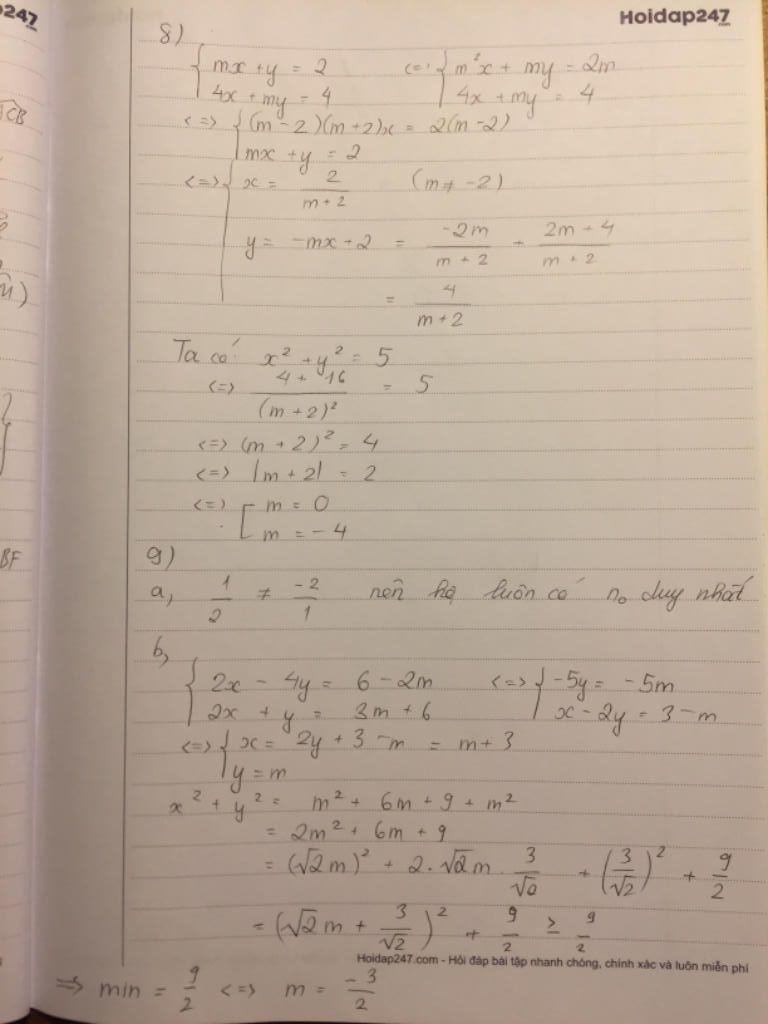 247
Hoidap247.com
8)
{ mx + y = 2 <=> { m²x + my = 2m
4x + my = 4 4x + my = 4
<=> { (m - 2)(m + 2)x = 2(m - 2)
mx + y = 2
<=> { x = 2/(m + 2) (m ≠ -2)
y = -mx + 2 = -2m/(m + 2) + (2m + 4)/(m + 2)
= 4/(m + 2)
Ta có x² + y² = 5
<=> (4 + 16)/(m + 2)² = 5
<=> (m + 2)² = 4
<=> |m + 2| = 2
<=> [ m = 0
m = -4
9)
a, 1/2 ≠ -2/1 nên hệ luôn có no duy nhất
b,
{ 2x - 4y = 6 - 2m <=> { -5y = -5m
2x + y = 3m + 6 x - 2y = 3 - m
<=> { x = 2y + 3 - m = m + 3
y = m
x² + y² = m² + 6m + 9 + m²
= 2m² + 6m + 9
= (√2m)² + 2.√2m . 3/√2 + (3/√2)² + 9/2
= (√2m + 3/√2)² + 9/2 ≥ 9/2
Hoidap247.com - Hỏi đáp bài tập nhanh chóng, chính xác và luôn miễn phí
=> min = 9/2 <=> m = -3/2
CB
BF